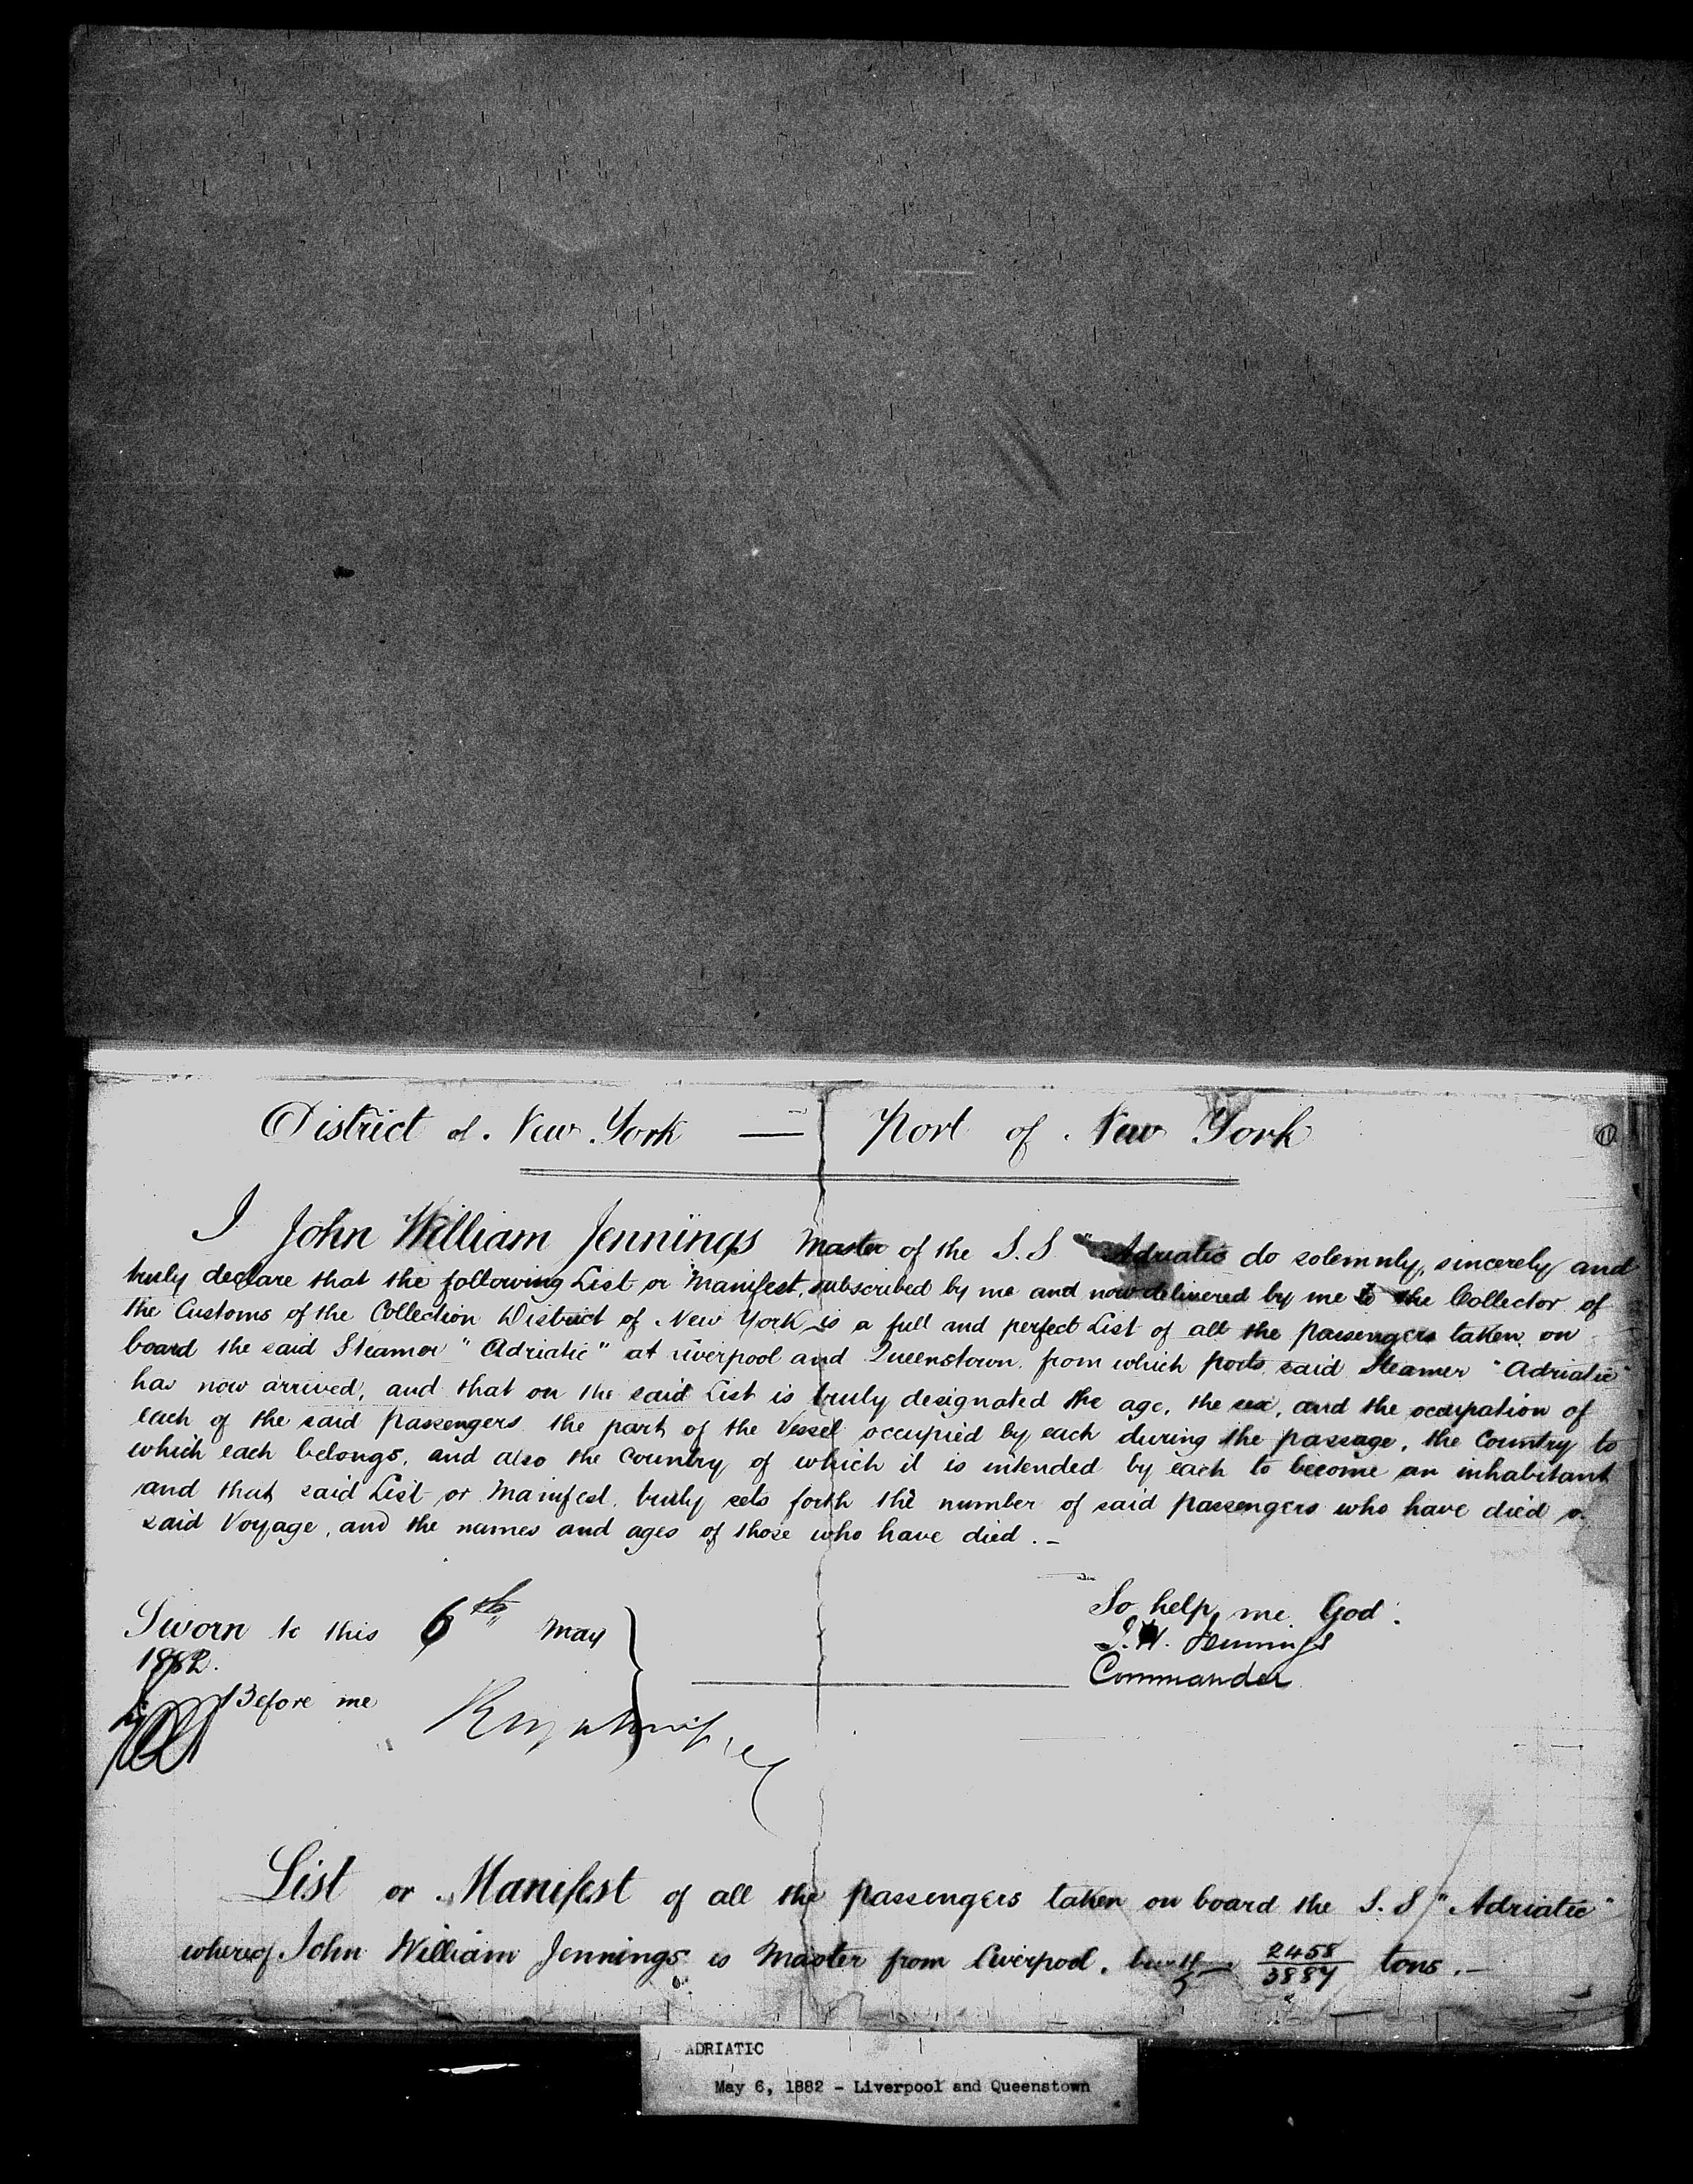 District of New York — Port of New York
I John William Jennings Master of the S.S "Adriatic do solemnly, sincerely and
truly declare that the following List or Manifest, subscribed by me and now delivered by me to the Collector of
the Customs of the Collection District of New York is a full and perfect List of all the passengers taken on
board the said Steamer "Adriatic" at Liverpool and Queenstown from which ports said Steamer "Adriatic"
has now arrived, and that on the said List is truly designated the age, the sex, and the occupation of
each of the said passengers the part of the Vessel occupied by each during the passage, the Country to
which each belongs, and also the Country of which it is intended by each to become an inhabitant
and that said List or Manifest, truly sets forth the number of said passengers who have died
said Voyage, and the names and ages of those who have died . –
Sworn to this 6th May
1882.
Before me
So help me God.
J.W. Jennings
Commander
List or Manifest of all the passengers taken on board the S.S "Adriatic"
whereof John William Jennings is Master from Liverpool. 2458/3887 tons . –
ADRIATIC
May 6, 1882 - Liverpool and Queenstown